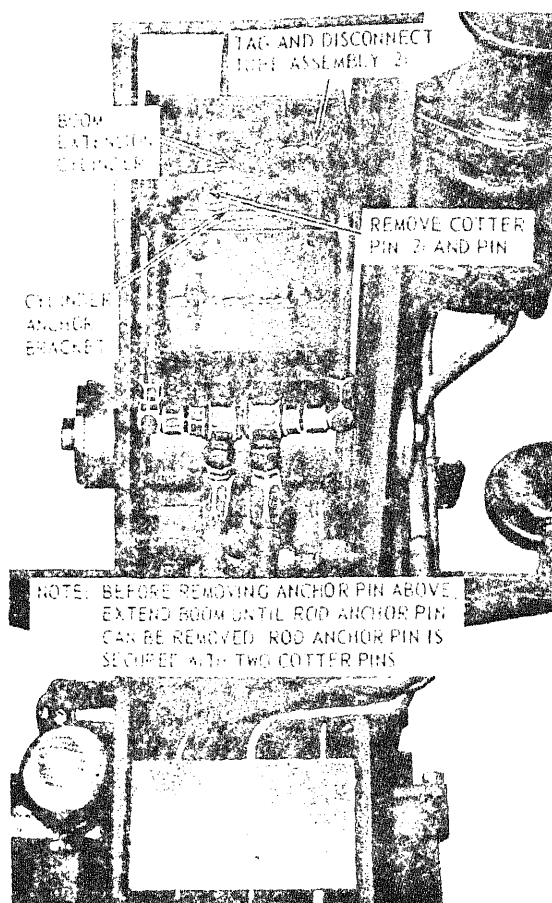 TAG AND DISCONNECT
TUBE ASSEMBLY (2)
BOOM
EXTENSION
CYLINDER
REMOVE COTTER
PIN (2) AND PIN
CYLINDER
ANCHOR
BRACKET
NOTE: BEFORE REMOVING ANCHOR PIN ABOVE,
EXTEND BOOM UNTIL ROD ANCHOR PIN
CAN BE REMOVED. ROD ANCHOR PIN IS
SECURED WITH TWO COTTER PINS